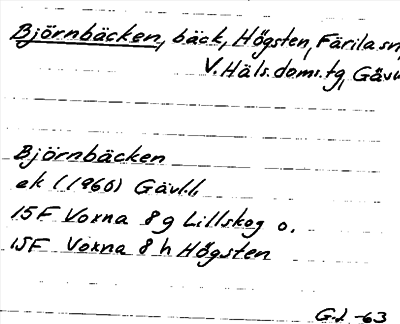 Björnbäcken, bäck, Högsten, Färila sn,
V. Häls. doms. tg, Gävl
Björnbäcken
ek (1960) Gävl.l,
15F Voxna 8g Lillskog o.
15F Voxna 8h Högsten
G.J. -63